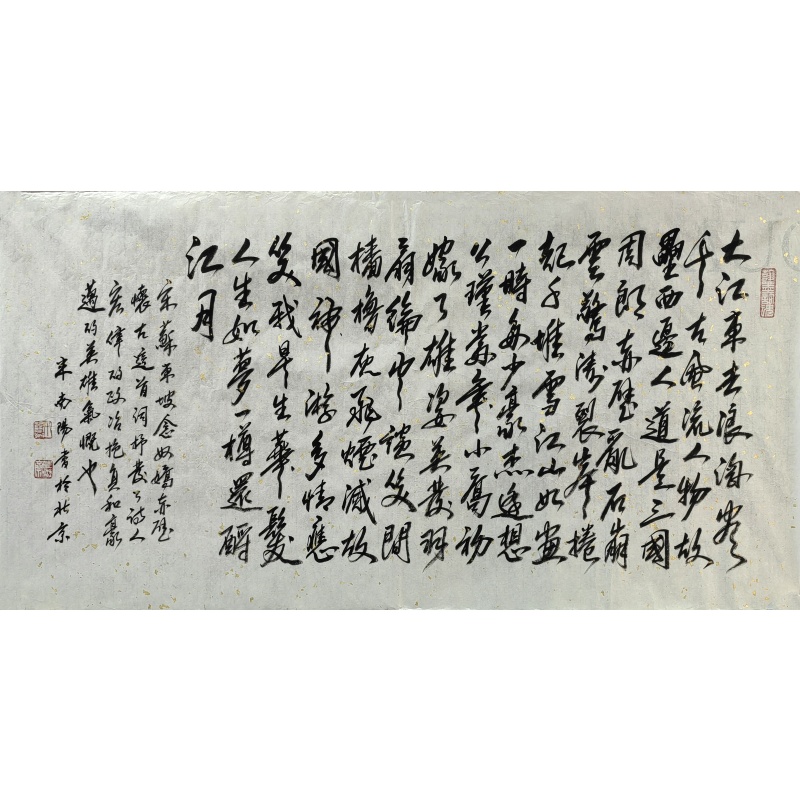 大江東去浪淘盡
千古風流人物故
壘西邊人道是三國
周郎赤壁亂石崩
雲驚濤裂岸捲
起千堆雪江山如畫
一時多少豪杰遙想
公瑾當年小喬初
嫁了雄姿英發羽
扇綸巾談笑間
檣櫓灰飛煙滅故
國神游多情應
笑我早生華髮
人生如夢一樽還酹
江月
宋蘇東坡念奴嬌赤壁
懷古這首詞抒發了詩人
宏偉的政治抱負和豪
邁的英雄氣慨也
南陽書於北京